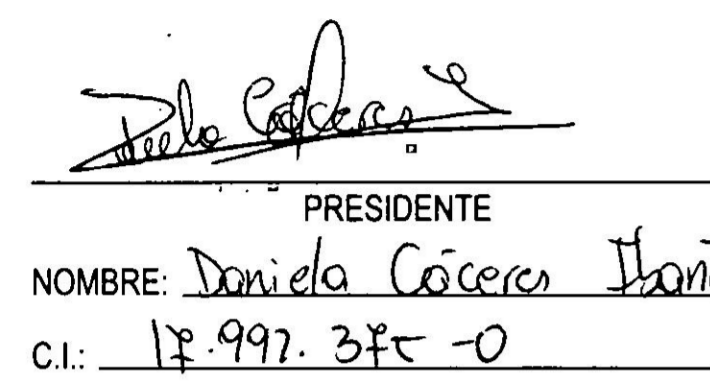 Daniela Cáceres I
PRESIDENTE
NOMBRE: Daniela Cáceres Ibañ
C.I.: 17.997.375-0